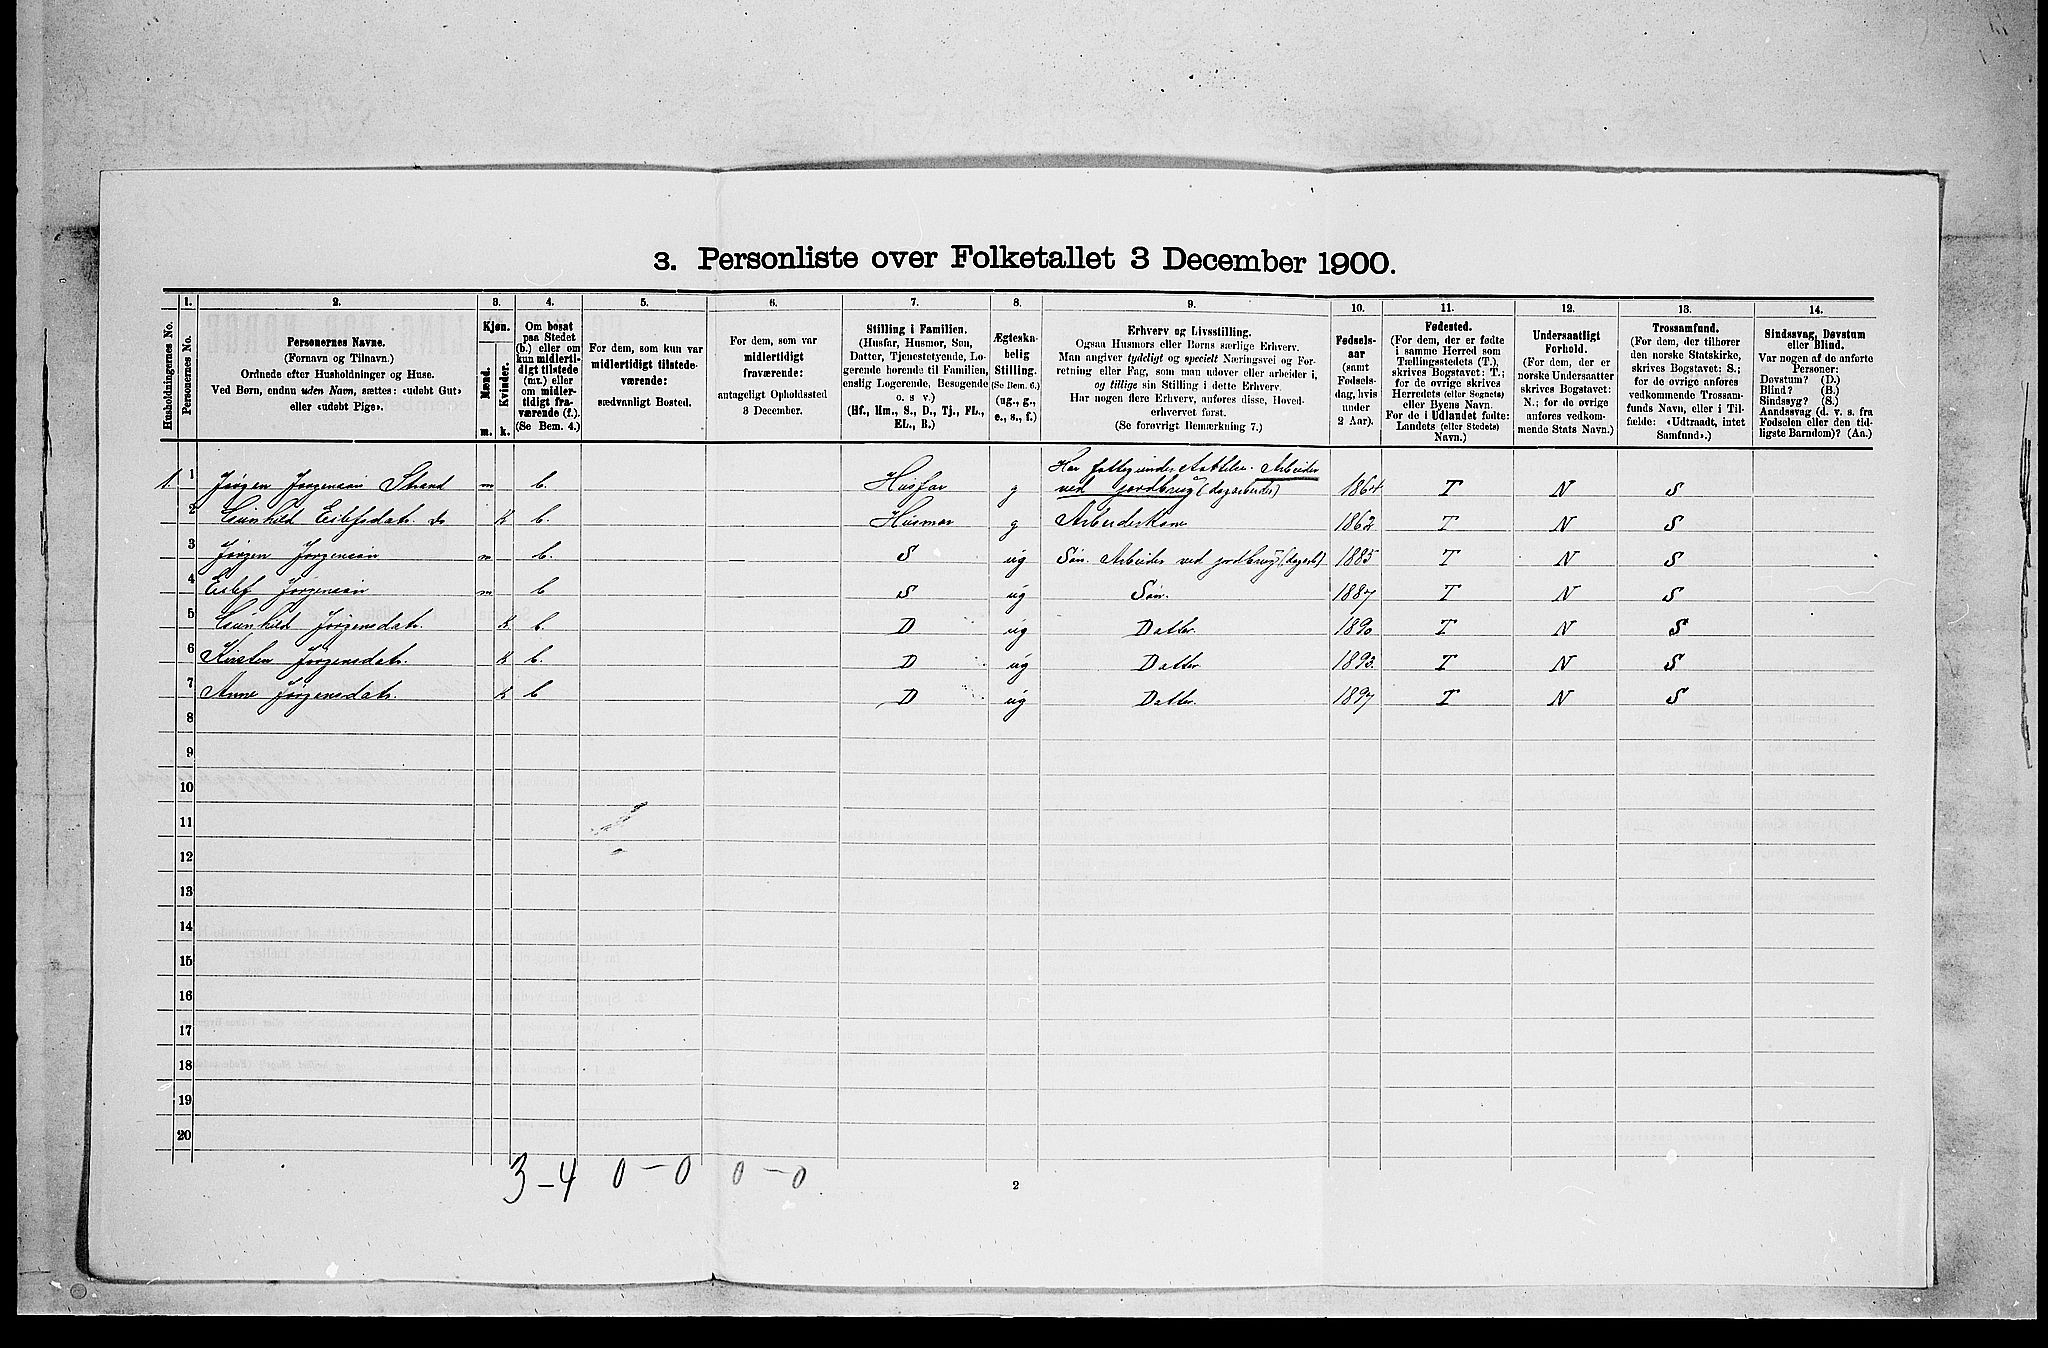 3. Personliste over Folketallet 3 December 1900.
1. 2. 3. 4. 5. 6. 7. 8. 9. 10. 11. 12. 13. 14.
Husholdningernes No.
Personernes No.
Personernes Navne.
(Fornavn og Tilnavn.)
Ordnede efter Husholdninger og Huse.
Ved Børn, endnu uden Navn, sættes: «udøbt Gut»
eller «udøbt Pige».
Kjøn.
Mænd.
Kvinder.
m. k.
Om bosat
paa Stedet
(b.) eller om
kun midlerti-
digt tilstede
(mt.) eller
om midler-
tidigt fra-
værende (f.).
(Se Bem. 4.)
For dem, som kun var
midlertidigt tilstede-
værende:
sædvanligt Bosted.
For dem, som var
midlertidigt
fraværende:
antageligt Opholdssted
3 December.
Stilling i Familien.
(Husfar, Husmor, Søn,
Datter, Tjenestetyende, Lo-
gerende hørende til Familien,
enslig Logerende, Besøgende
o. s v.)
(Hf., Hm., S., D., Tj., FL.,
EL., B.)
Ægteska-
belig
Stilling.
(Se Bem. 6.)
(ug., g.,
e., s., f.)
Erhverv og Livsstilling.
Ogsaa Husmors eller Børns særlige Erhverv.
Man angiver tydeligt og specielt Næringsvei og For-
retning eller Fag, som man udøver eller arbeider i,
og tillige sin Stilling i dette Erhverv.
Har nogen flere Erhverv, anføres disse, Hoved-
erhvervet først.
(Se forøvrigt Bemærkning 7.)
Fødsels-
aar
(samt
Fødsels-
dag, hvis
under
2 Aar).
Fødested.
(For dem, der er fødte
i samme Herred som
Tællingsstedets (T.),
skrives Bogstavet: T.;
for de øvrige skrives
Herredets (eller Sognets)
eller Byens Navn.
For de i Udlandet fødte:
Landets (eller Stedets)
Navn.)
Undersaatligt
Forhold.
(For dem, der er
norske Undersaatter
skrives Bogstavet:
N.; for de øvrige
anføres vedkom-
mende Stats Navn.)
Trossamfund.
(For dem, der tilhører
den norske Statskirke,
skrives Bogstavet: S.;
for de øvrige anføres
vedkommende Trossam-
funds Navn, eller i Til-
fælde: «Udtraadt, intet
Samfund».)
Sindssvag, Døvstum
eller Blind.
Var nogen af de anførte
Personer:
Døvstum? (D.)
Blind? (B.)
Sindssyg? (S.)
Aandssvag (d. v. s. fra
Fødselen eller den tid-
ligste Barndom)? (Aa.)
1. 1 Jørgen Jørgensøn Strand m b. Husfar g Har fattigunder Arbeider
ved jordbrug (dagarbeider) 1864 T N S
2 Gunhild Eilefsdatr. Do K b. Husmor g Arbeiderkone 1862 T N S
3 Jørgen Jørgensøn m b. S ug Søn. Arbeider ved jordbrug (dagarb) 1885 T N S
4 Eilef Jørgensøn m b S ug Søn. 1887 T N S
5 Gunhild Jørgensdatr. K b. D ug Datter. 1890 T N S
6 Kirsten Jørgensdatr. K b. D ug Datter. 1893. T N S
7 Anne Jørgensdatr. K b D ug Datter. 1897 T N S
8
9
10
11
12
13
14
15
16
17
18
19
20
3-4 0-0 0-0
2